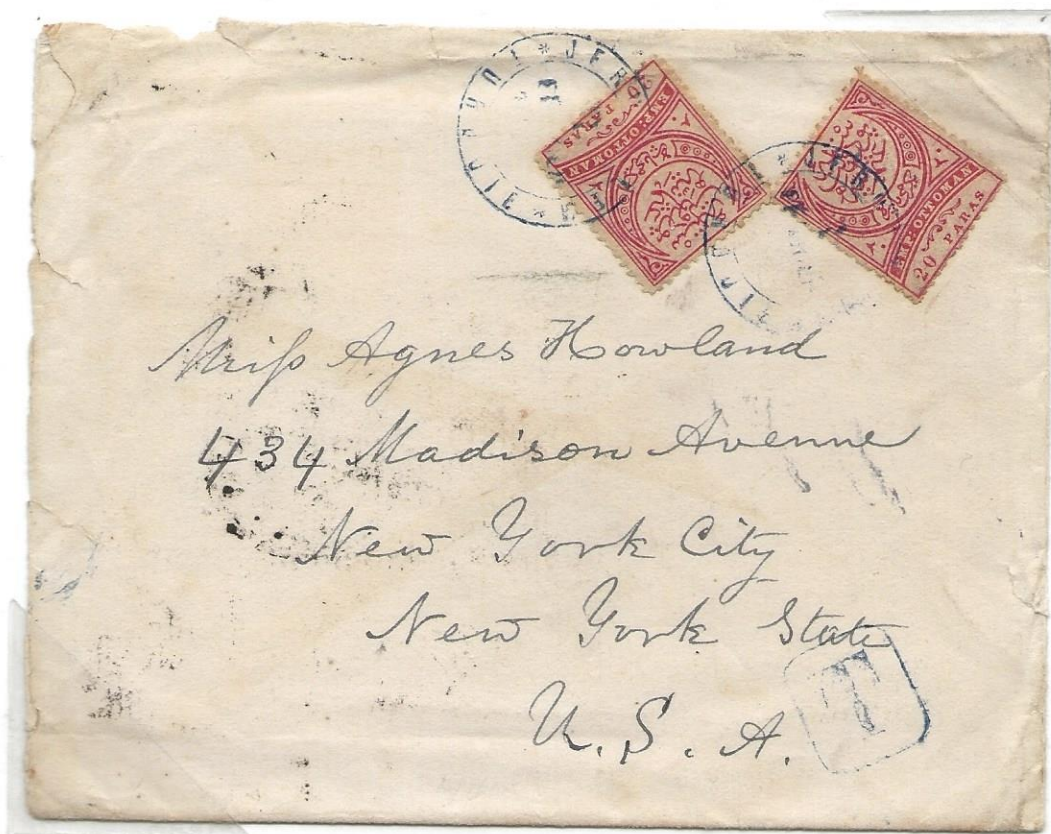 JER
EMP. OTTOMAN
PARAS
JER
EMP. OTTOMAN
20 PARAS
Miss Agnes Howland
434 Madison Avenue
New York City
New York State
U. S. A.
T